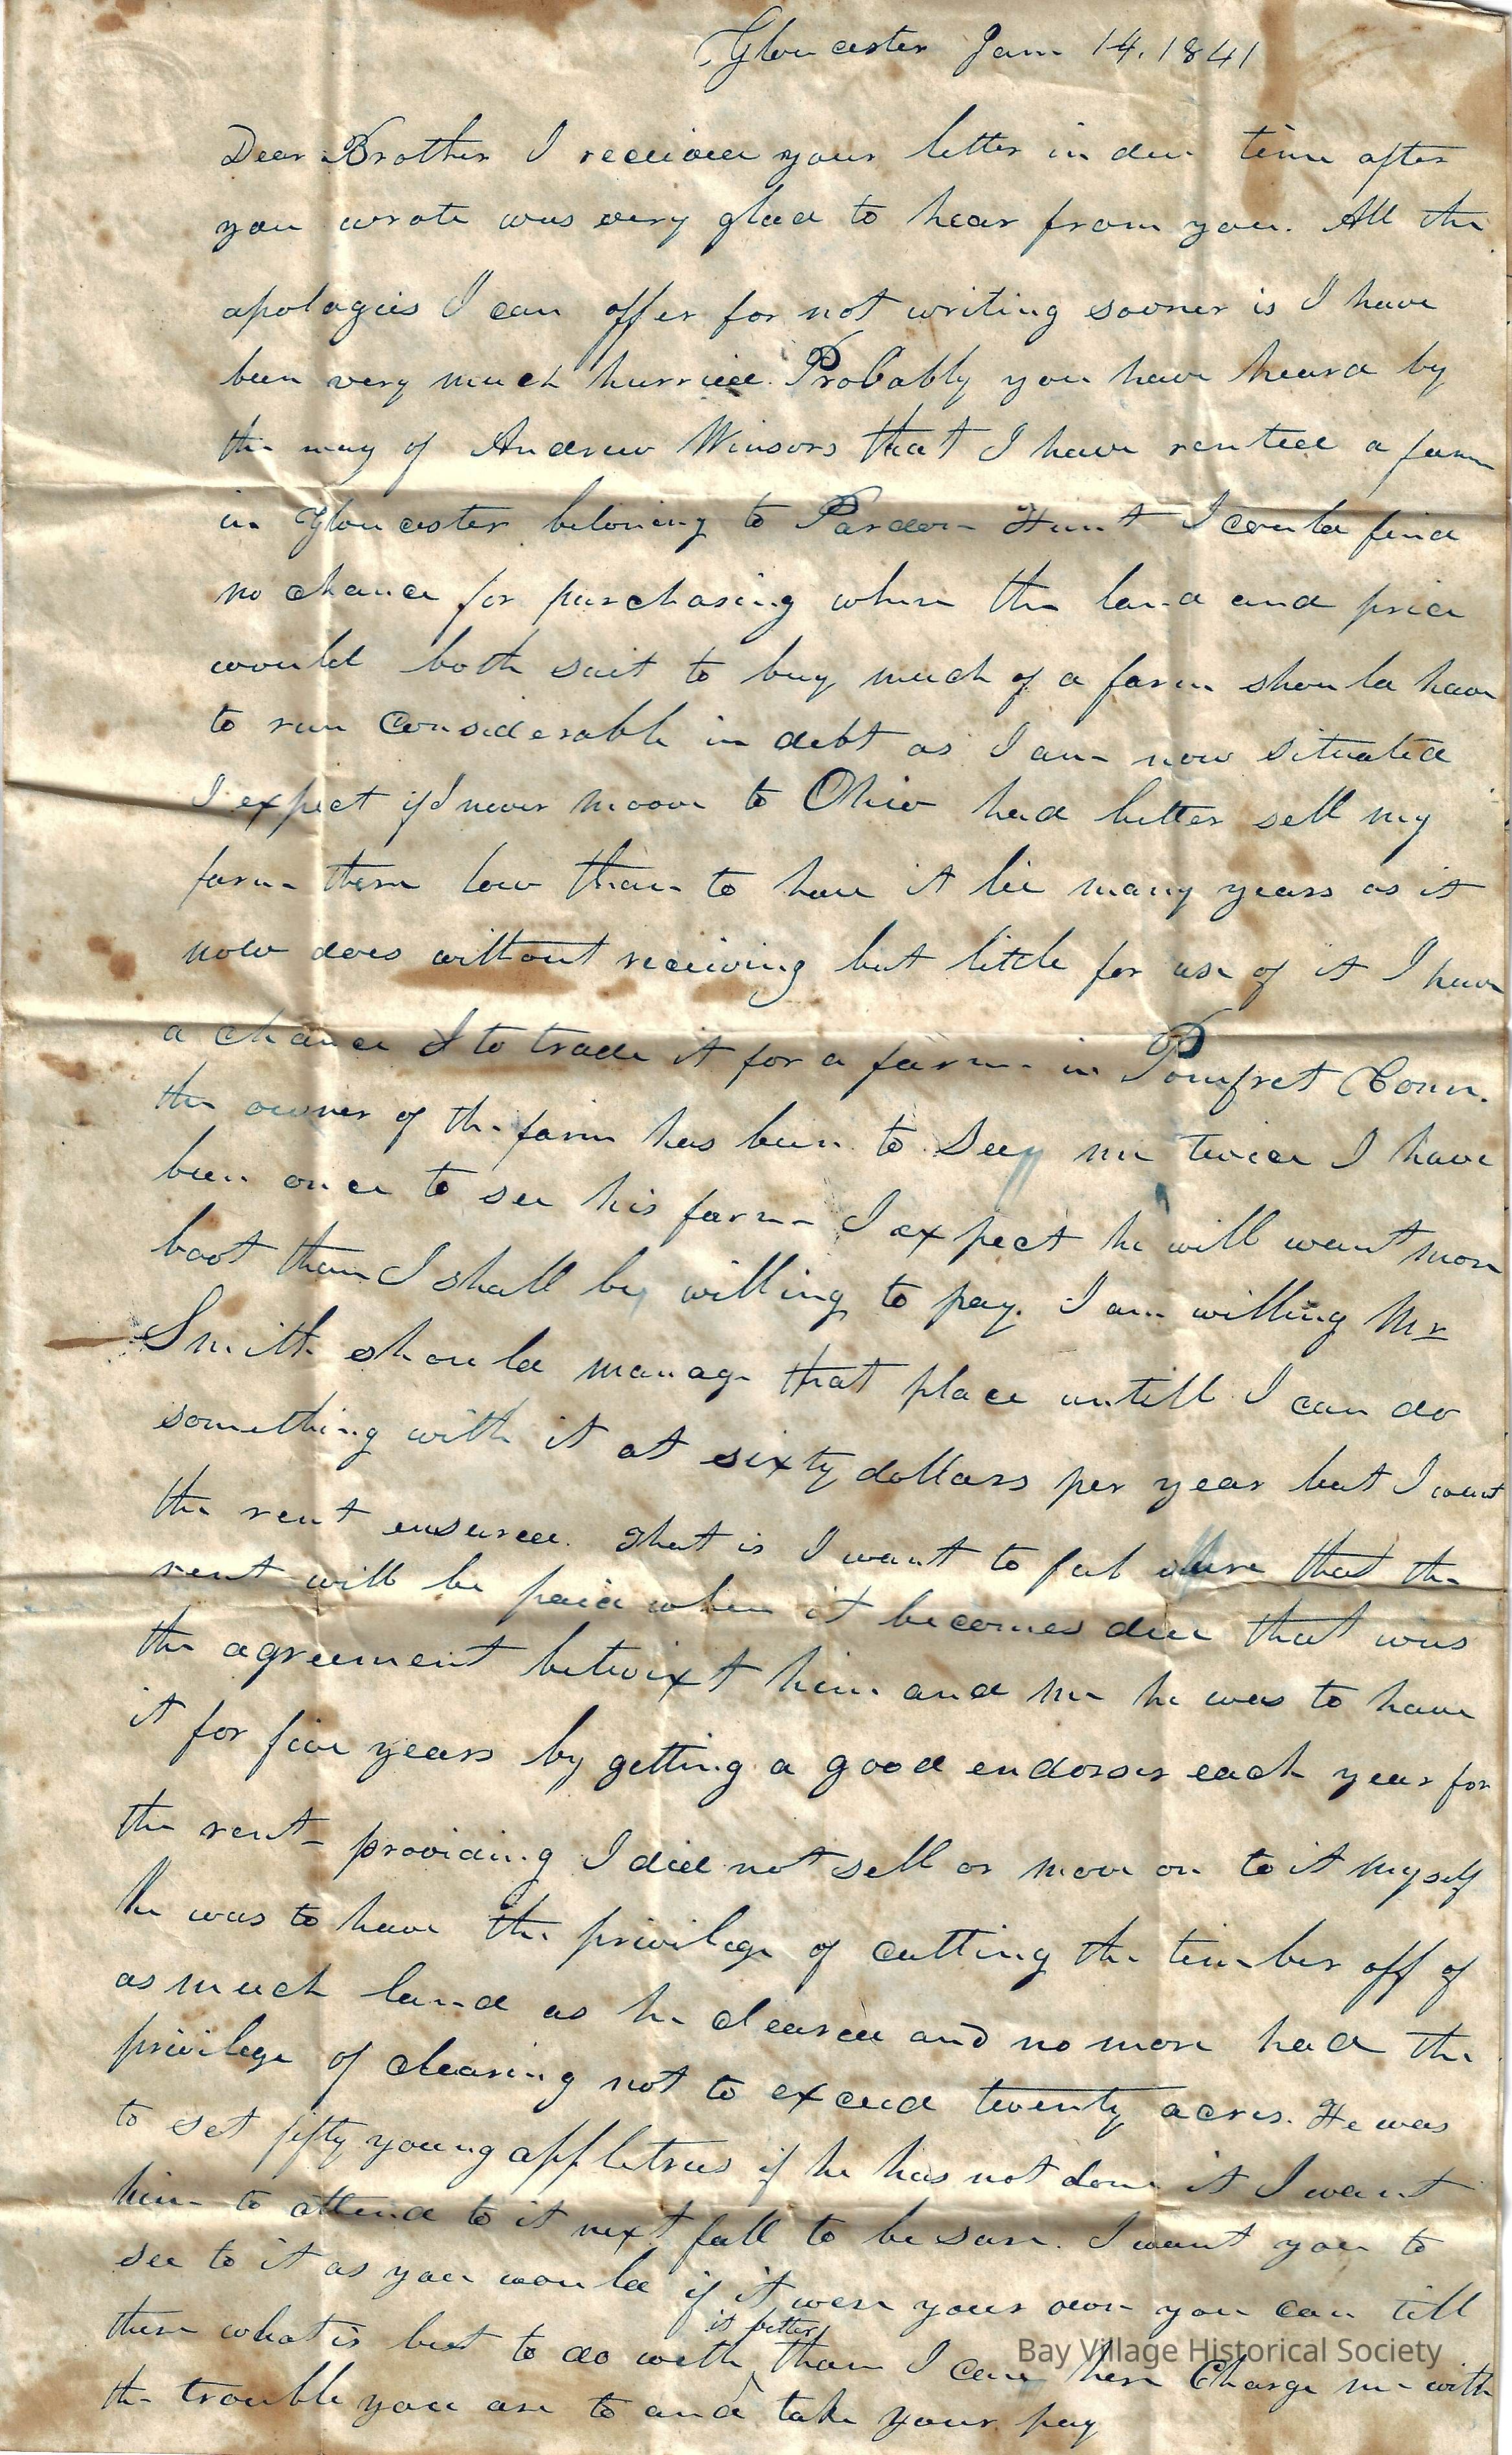 Gloucester Jan 14. 1841
Dear Brother I received your letter in due time after
you wrote was very glad to hear from you. All the
apologies I can offer for not writing sooner is I have
been very much hurried. Probably you have heard by
the way of Andrew Winsors that I have rented a farm
in Gloucester beloning to Pardon Hunt I could find
no chance for purchasing where the land and price
would both suit to buy much of a farm should have
to run considerable in debt as I am now situated
I expect if I never moove to Ohio had better sell my
farm there low than to have it lie many years as it
now does without receiving but little for use of it I have
a chance I to trade it for a farm in Pomfret Conn.
the owner of the farm has been to see me twice I have
been once to see his farm I expect he will want more
boot than I shall be willing to pay. I am willing Mr
Smith should manage that place untill I can do
something with it at sixty dollars per year but I want
the rent ensured. That is I want to feel that the
rent will be paid when it becomes due that was
the agreement betwixt him and me he was to have
it for five years by getting a good endorser each year for
the rent - providing I did not sell or move on to it myself
He was to have the privilege of cutting the timber off of
as much land as he cleared and no more had the
privilege of clearing not to exceed twenty acres. He was
to set fifty young appletrees if he has not done it I want
him to attend to it next fall to be sure. I want you to
see to it as you would if it were your own you can tell
it better
there what is best to do with than I can here Charge me with
the trouble you are to and take your pay
Bay Village Historical Society